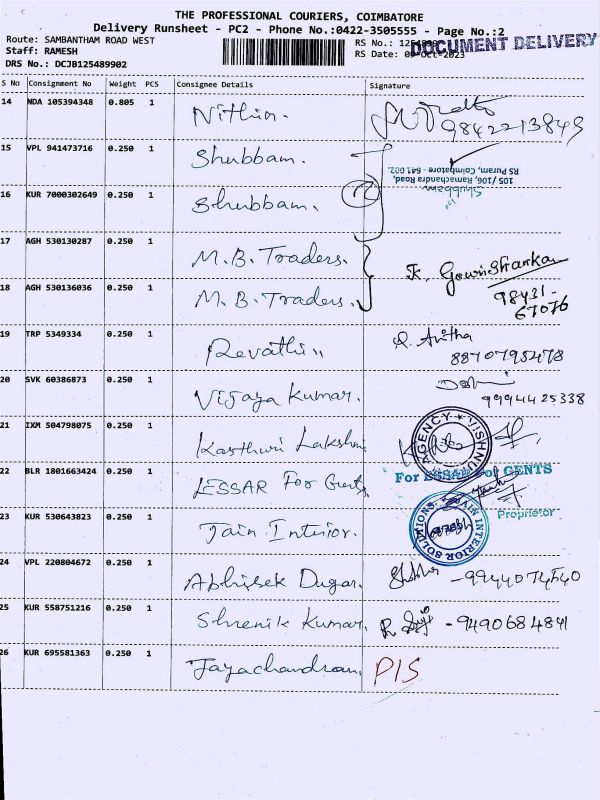 THE PROFESSIONAL COURIERS, COIMBATORE
Delivery Runsheet - PC2 - Phone No.:0422-3505555 - Page No.:2
Route: SAMBANTHAM ROAD WEST
RS No.:
DOCUMENT DELIVERY
Staff: RAMESH
RS Date: Oct-2023
DRS No.: DCJB125489902
S No Consignment No Weight PCS Consignee Details Signature
14 NDA 105394348 0.805 1 Nithin. 9842213849
15 VPL 941473716 0.250 1 Shubbam.
105 / 106, Ramachandra Road,
RS Puram, Coimbatore - 641 002.
16 KUR 7000302649 0.250 1 Shubbam. 2
17 AGH 530130287 0.250 1 M.B. Traders. K. Gowri Shankar
18 AGH 530136036 0.250 1 M.B. Traders. 98431-
67076
19 TRP 5349334 0.250 1 Revathi R. Anitha
8870795478
20 SVK 60386873 0.250 1 Vijaya Kumar. 9994425338
21 IXM 504798075 0.250 1 Kasthuri Lakshmi
AGENCY VISHNU
22 BLR 1801663424 0.250 1 LESSAR For Gents
For LESSAR For GENTS
Proprietor
23 KUR 530643823 0.250 1 Jain Intirior.
JAIN INTERIOR SOLUTIONS
24 VPL 220804672 0.250 1 Abhisek Dugar. -9944074540
25 KUR 558751216 0.250 1 Shrenik Kumar. -9490684841
26 KUR 695581363 0.250 1 Jayachandran PIS